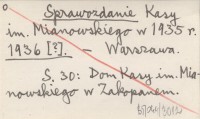 Sprawozdanie Kasy
im. Mianowskiego w 1935 r.
1936 [?]. - Warszawa.
S. 30: Dom Kasy im. Mia-
nowskiego w Zakopanem.